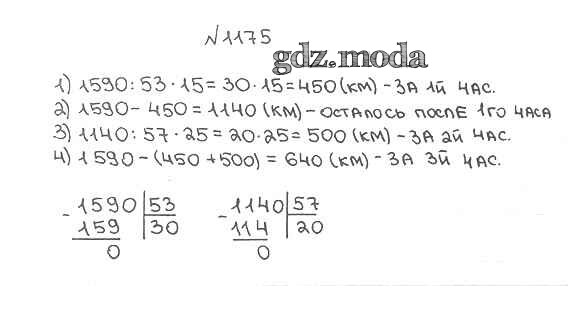 №1175
gdz.moda
1) 1590 : 53 · 15 = 30 · 15 = 450 (км) – за 1й час.
2) 1590 – 450 = 1140 (км) – осталось после 1го часа
3) 1140 : 57 · 25 = 20 · 25 = 500 (км) – за 2й час.
4) 1590 – (450 + 500) = 640 (км) – за 3й час.
- 1590 | 53 - 1140 | 57
159 | 30 114 | 20
0 0